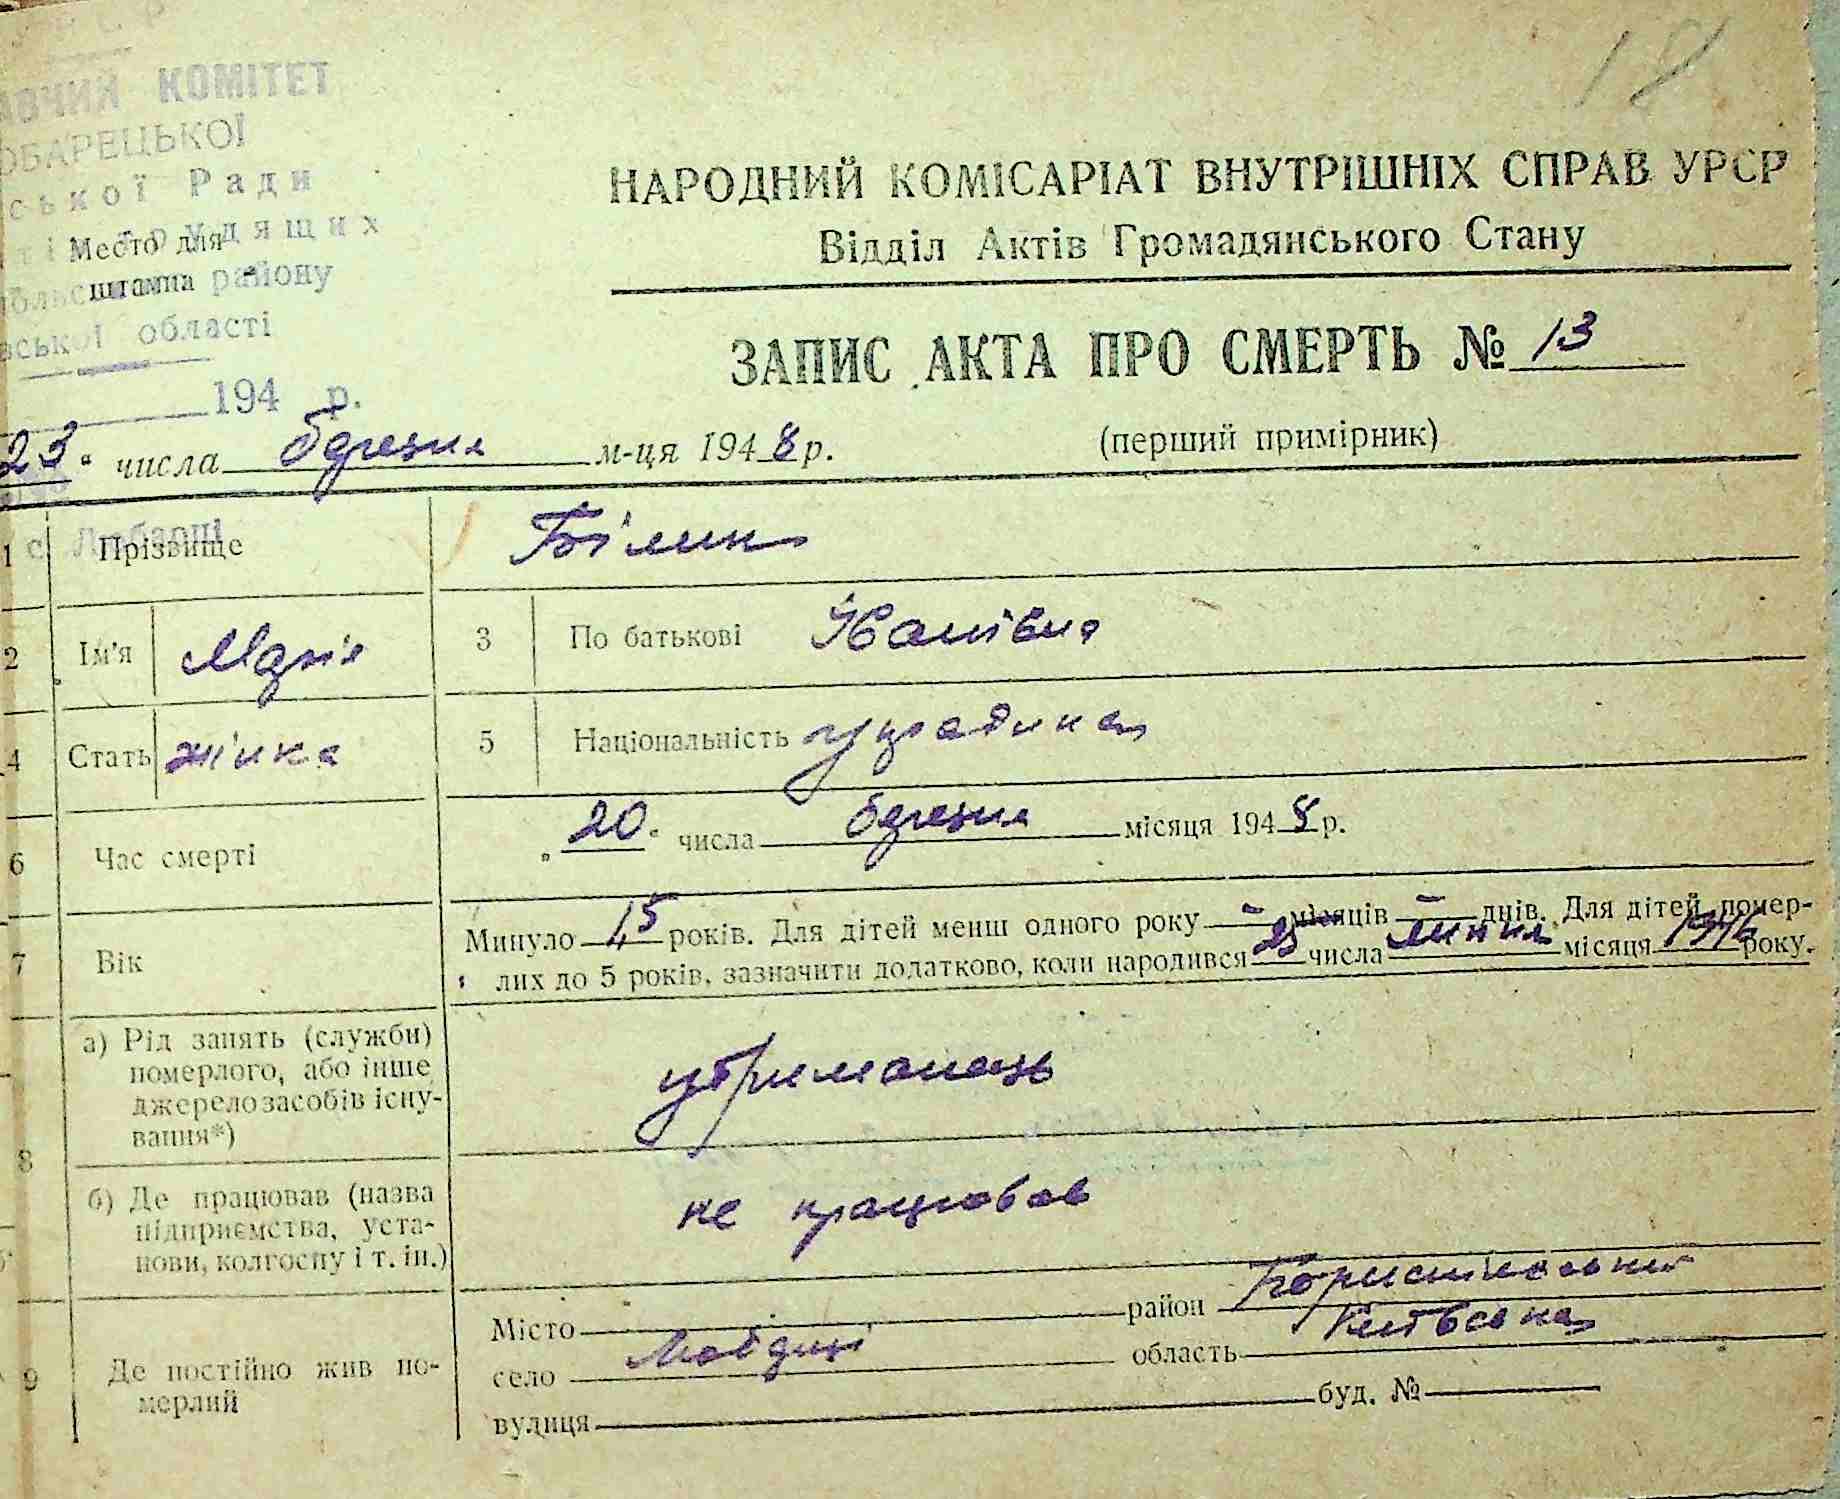 18
АВЧИЙ КОМІТЕТ
ОБАРЕЦЬКОЇ
СЬКОЇ Ради
Место для
штампа району
ської області
194 р.
НАРОДНИЙ КОМІСАРІАТ ВНУТРІШНІХ СПРАВ УРСР
Відділ Актів Громадянського Стану
ЗАПИС АКТА ПРО СМЕРТЬ № 13
23 числа березня м-ця 1948 р.
(перший примірник)
1 Прізвище Білик
2 Ім'я Марія 3 По батькові Іванівна
4 Стать жінка 5 Національність
6 Час смерті 20 числа березня місяця 1948 р.
7 Вік Минуло 1,5 років. Для дітей менш одного року – місяців – днів. Для дітей помер-
лих до 5 років, зазначити додатково, коли народився 25 числа липня місяця 1946 року.
8 а) Рід занять (служби)
померлого, або інше
джерело засобів існу-
вання*)
утриманець
б) Де працював (назва
підприємства, уста-
нови, колгоспу і т. ін.)
не працював
9 Де постійно жив по-
мерлий
Місто район Бориспільський
село область Київська
вулиця буд. №